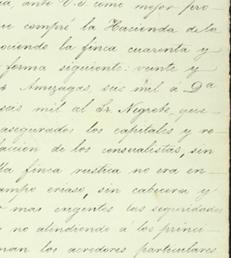 ante V.E. como mejor pro
compré la Hacienda de la
ciendo la finca cuarenta y
forma siguiente: veinte y
Amezagas, seis mil a Dª
mil al Sr. Nigrete, que
asegurados los capitales y re
de los censualistas, sin
la finca rustica no era en
eriaso, sin cabecera y
mas urgentes las seguridades
no atendiendo a los princi
los acredores particulares